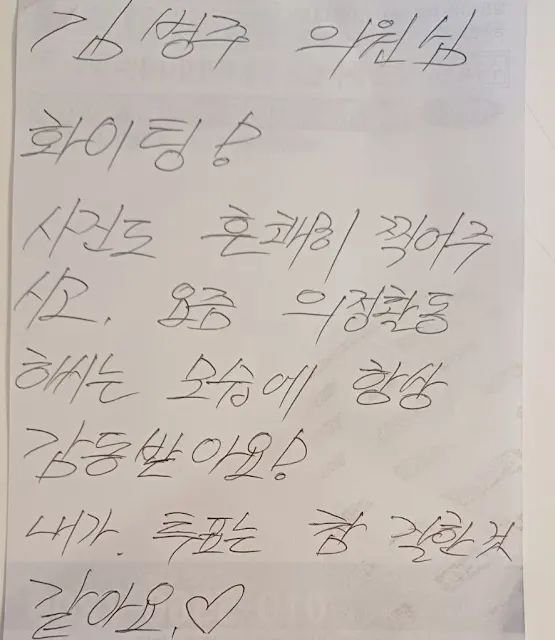 김병주 의원님
화이팅!
사진도 흔쾌히 찍어주
시고, 요즘 의정활동
하시는 모습에 항상
감동받아요!
내가, 투표는 참 잘한것
같아요,♡